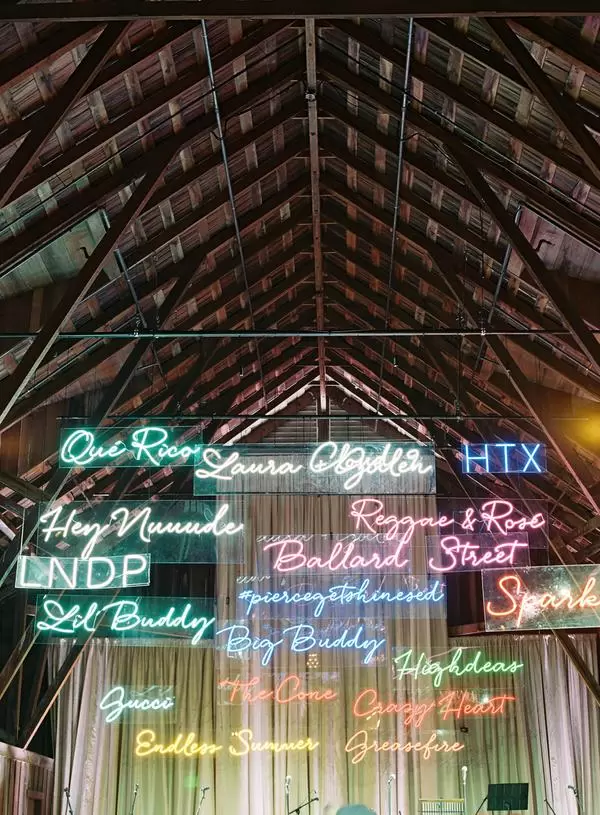 Qué Rico
Laura
HTX
Hey Nuuude
Reggae & Rosé
Ballard Street
LNDP
#piercegetshinesed
Spark
Lil Buddy
Big Buddy
Highdeas
Gucci
The Cone
Crazy Heart
Endless Summer
Greasefire